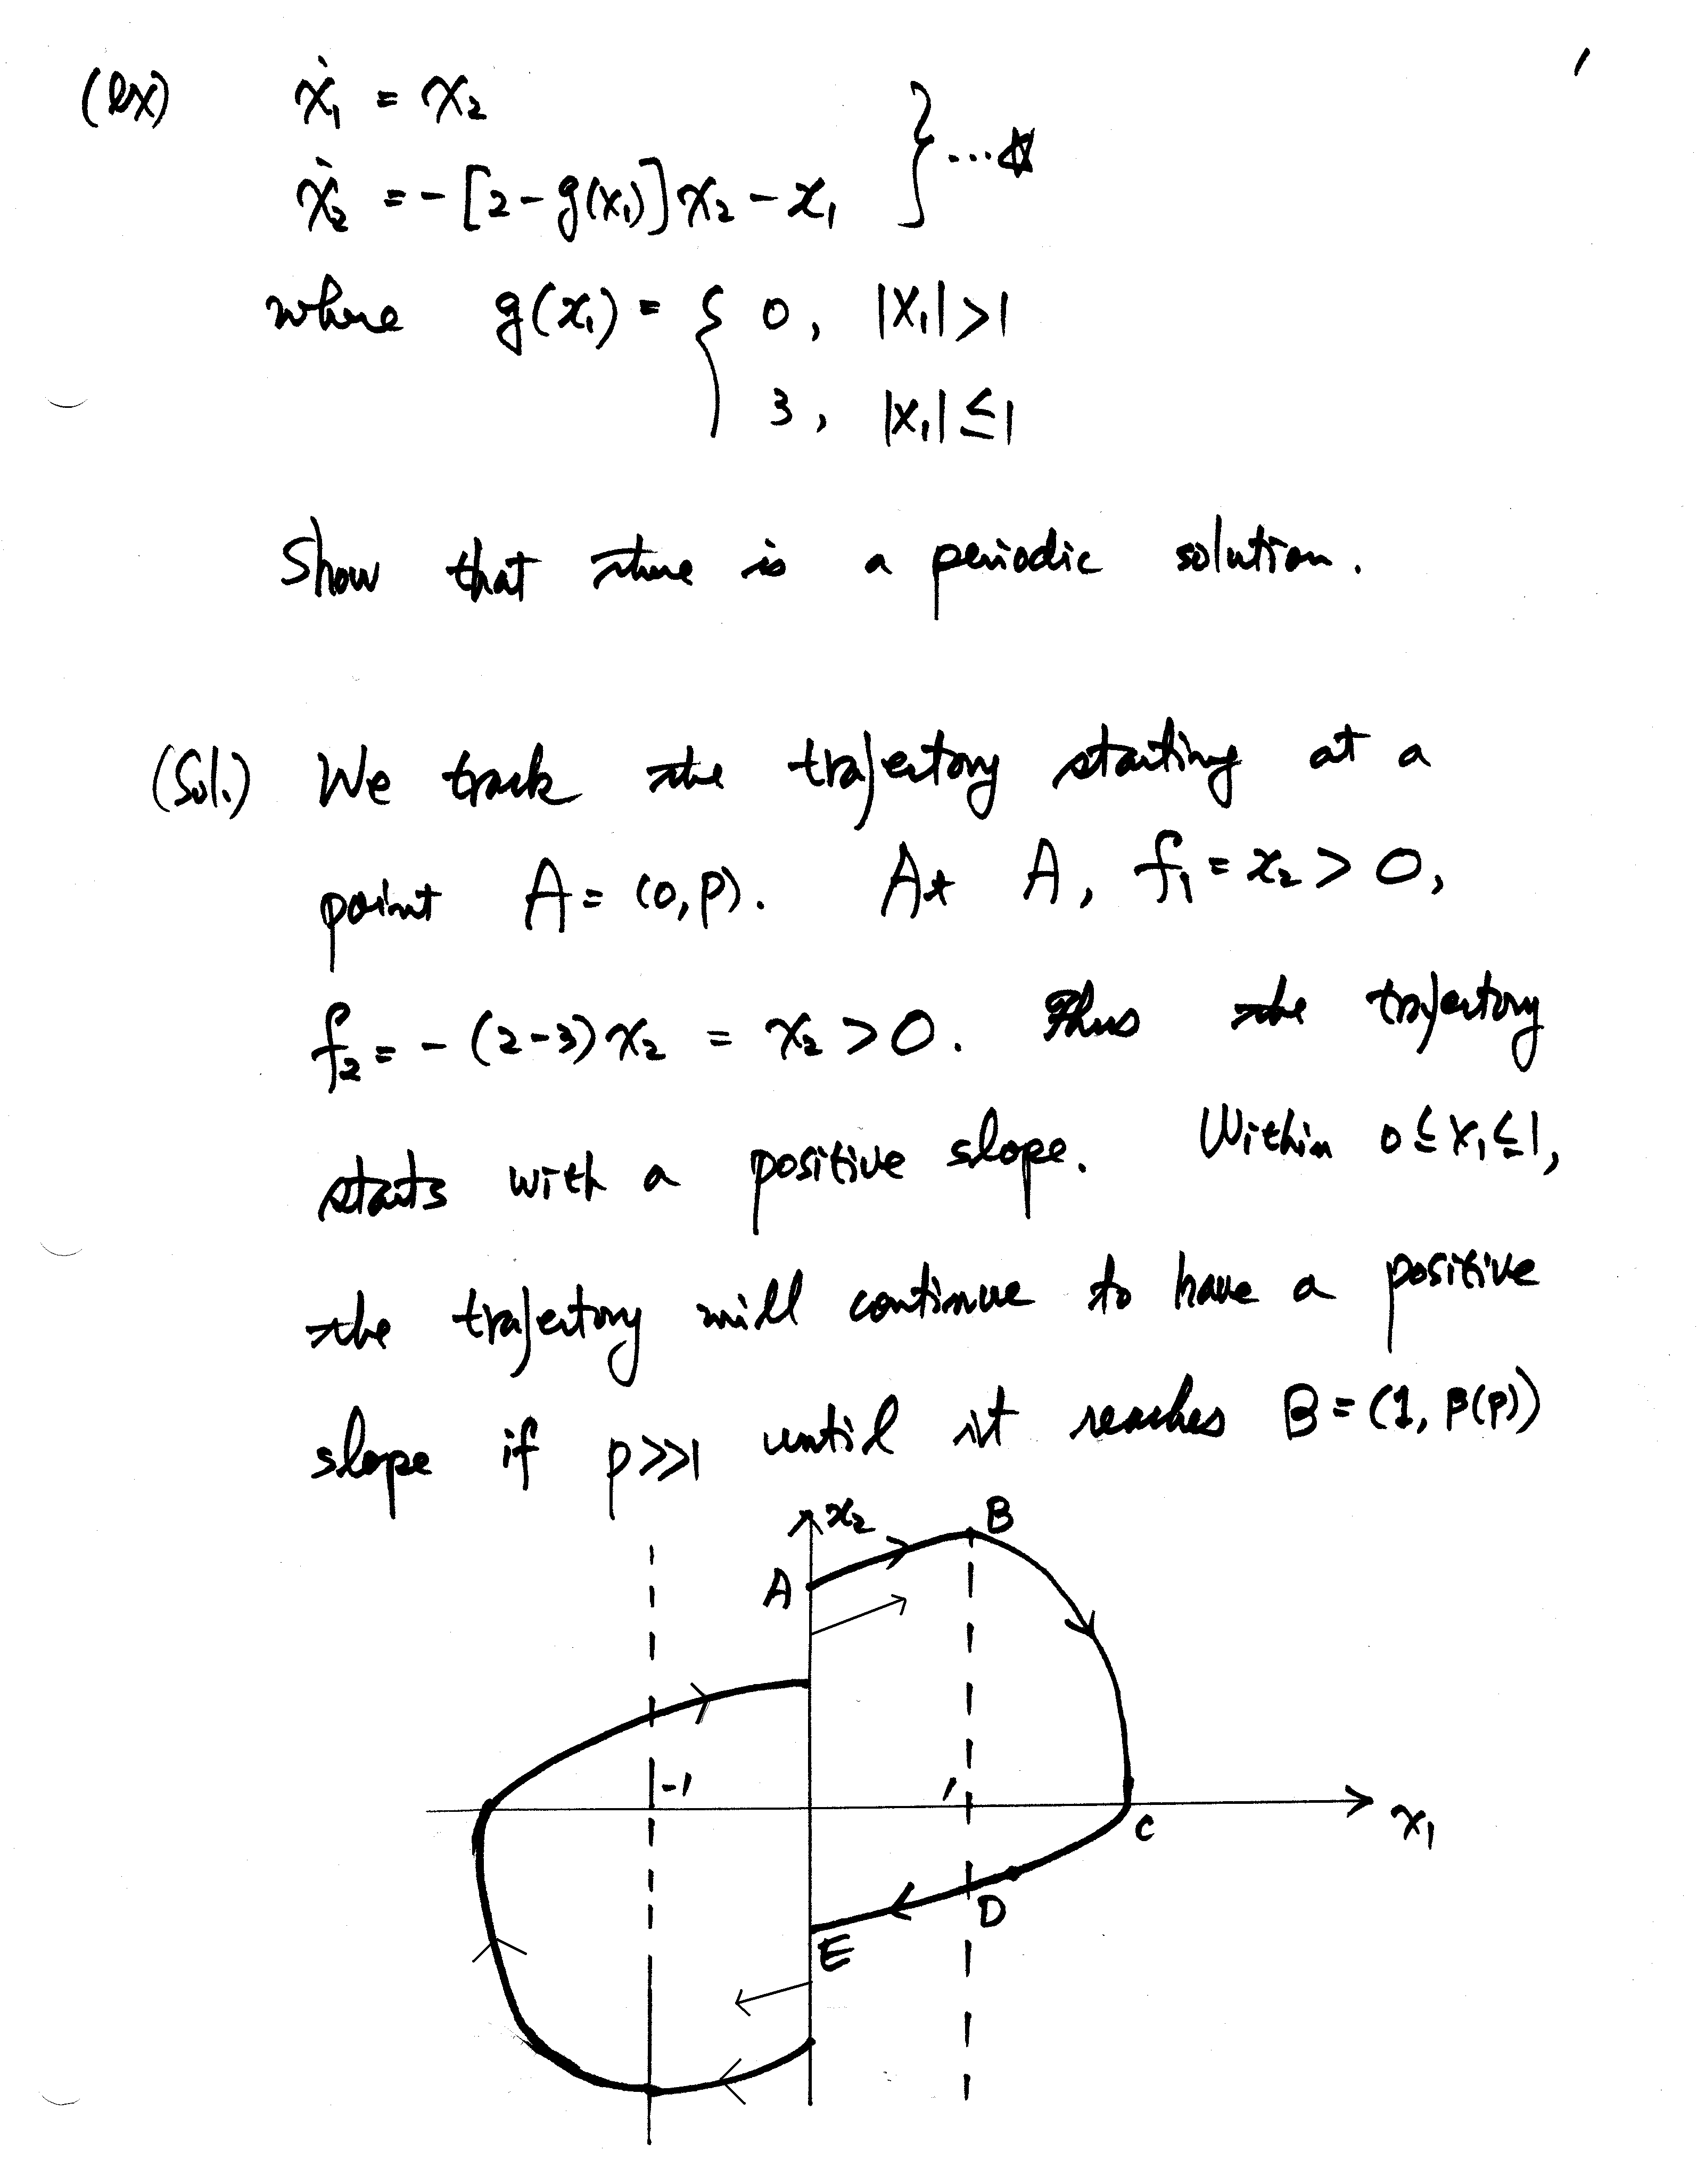 1
(ex) ẋ₁ = x₂
ẋ₂ = -[2-g(x₁)]x₂ - x₁ } ...☆
where g(x₁) = { 0, |x₁|>1
3, |x₁|≤1
Show that there is a periodic solution.
(Sol.) We track the trajectory starting at a
point A = (0,p). At A, f₁ = x₂ > 0,
f₂ = -(2-3)x₂ = x₂ > 0. Thus the trajectory
starts with a positive slope. Within 0≤x₁≤1,
the trajectory will continue to have a positive
slope if p>>1 until it reaches B = (1, β(p))
x₂
B
A
-1
1
C
x₁
D
E